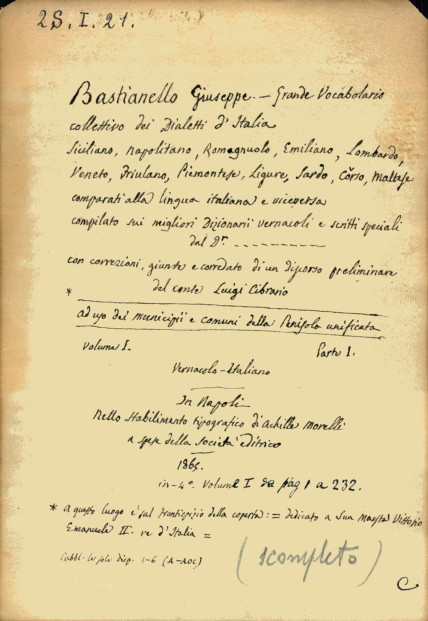 2S. I. 21.
Bastianello Giuseppe. — Grande Vocabolario
collettivo dei Dialetti d'Italia
Siciliano, Napolitano, Romagnuolo, Emiliano, Lombardo,
Veneto, Friulano, Piemontese, Ligure, Sardo, Côrso, Maltese
comparati alla lingua italiana e viceversa
compilato sui migliori Dizionarii vernacoli e scritti speciali
dal Dr. ---------
con correzioni, giunte e corredato di un discorso preliminare
del conte Luigi Cibrario
*
ad uso dei municipii e comuni della Penisola unificata
Volume I. Parte I.
Vernacolo-Italiano
In Napoli
Nello Stabilimento tipografico di Achille Morelli
a spese della Società editrice
1865.
in-4º. Volume I da pag 1 a 232.
* A questo luogo è sul frontispizio della coperta: = dedicato a Sua Maestà Vittorio
Emanuele II. re d'Italia =
Pubbl. le sole disp. 1-6 (A-AOC)
(scompleto)
C